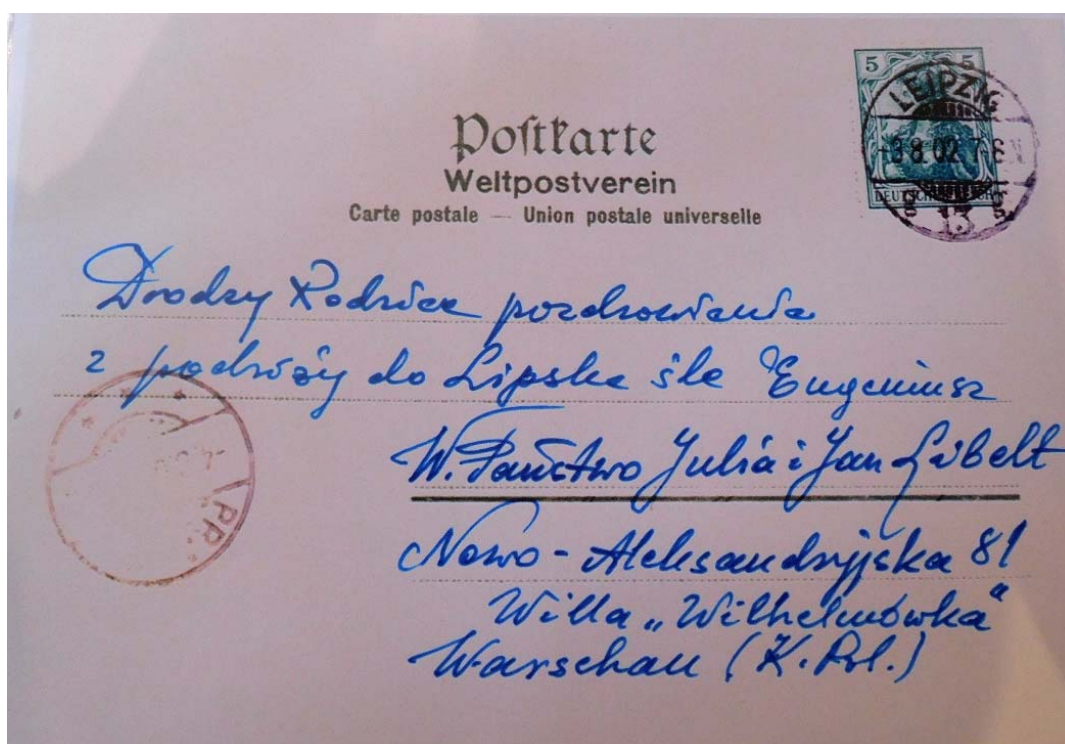 5 5
LEIPZIG
-3 8 02 7-8 N
DEUTSCHES REICH
13
Postkarte
Weltpostverein
Carte postale — Union postale universelle
Drodzy Rodzice pozdrowienia
z podróży do Lipska śle Eugeniusz
W. Państwo Julia i Jan Libelt
Nowo - Aleksandryjska 81
Willa „Wilhelmówka"
Warschau (K. Pol.)
PP.